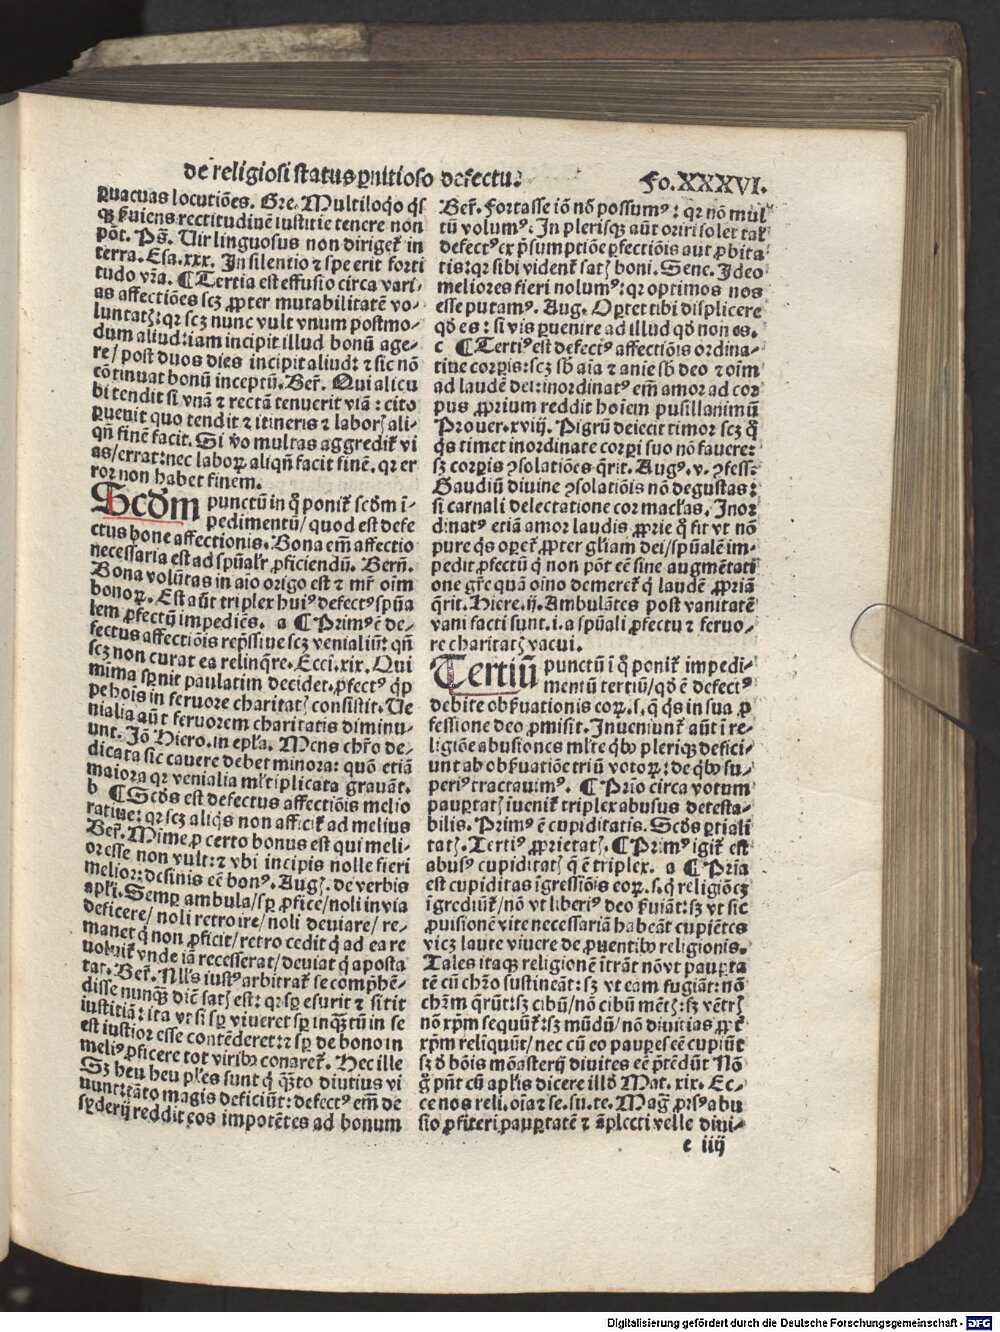 de religiosi status ꝑnitioso defectu.
Fo.XXXVI.
ꝑuacuas locutiões. Gre. Multiloq̇o q̇s
qꝫ ẜuiens rectitudinē iustitie tenere non
pōt. Ps̄. Uir linguosus non dirigeť in
terra. Esa.xxx. In silentio ⁊ spe erit forti
tudo vr̄a. ¶ Tertia est effusio circa vari-
as affectiões scꝫ ꝓpter mutabilitatē vo-
luntatꝭ: qꝛ scꝫ nunc vult vnum postmo-
dum aliud: iam incipit illud bonū age-
re/ post duos dies incipit aliud: ⁊ sic nō
cōtinuat bonū inceptū. Beř. Qui alicu
bi tendit si vnā ⁊ rectā tenuerit viā: cito
ꝑuenit quo tendit ⁊ itineris ⁊ laborꝭ ali-
qn̄ finē facit. Si v̊o multas aggrediť vi
as/ errat: nec laboꝝ aliqn̄ facit finē. qꝛ er
ror non habet finem.
Scd̄m punctū in q̊ poniť scd̄m ī-
pedimentū/ quod est defe
ctus bone affectionis. Bona em̄ affectio
necessaria est ad spūalr̄ ꝓficiendū. Bern̄.
Bona volūtas in aīo origo est ⁊ mr̄ oīm
bonoꝝ. Est aūt triplex huiꝰ defectꝰ spūa
lem ꝓfectū impediēs. a ¶ Primꝰ ē de-
fectus affectiōis rep̄ssiue scꝫ venialiū: qn̄
scꝫ non curat ea relinq̄re. Ecci.xix. Qui
mima sꝑnit paulatim decidet. ꝓfectꝰ q̇p
pe hoīs in feruore charitatꝭ consistit. Ue
nialia aūt feruorem charitatis diminu-
unt. Jō Hiero. in epl̄a. Mens chr̄o de-
dicata sic cauere debet minora: quō etiā
maiora qꝛ venialia ml̄tiplicata grauāt.
b ¶ Scd̄s est defectus affectiōis melio
ratiue: qꝛ scꝫ aliq̇s non afficiť ad melius
Beř. Mime ꝓ certo bonus est qui meli-
or esse non vult: ⁊ vbi incipis nolle fieri
melior: desinis eē bonꝰ. Augꝭ. de verbis
apl̄i. Semꝑ ambula/ sꝑ ꝓfice/ noli in via
deficere/ noli retro ire/ noli deuiare/ re-
manet q̇ non ꝓficit/ retro cedit q̇ ad ea re
uoluiť vnde iā recesserat/ deuiat q̇ aposta
tat. Beř. Nllꝰ iustꝰ arbitrať se comp̄hē-
disse nunqꝫ diē satꝭ est: qꝛ sꝑ esurit ⁊ sitit
iustitiā: ita vt si sꝑ viueret sꝑ inqꝫtū in se
est iustior esse contēderet: ⁊ sꝑ de bono in
meliꝰ ꝓficere tot viribꝰ conareť. Hec ille
Sꝫ heu heu pl̄es sunt q̇ qꝫto diutius vi
uunt: tāto magis deficiūt: defectꝰ em̄ de
sẏderij reddit eos impotētes ad bonum
Beř. fortasse iō nō possumꝰ: qꝛ nō mul
tū volumꝰ. In plerisqꝫ aūt oriri solet tal̄
defectꝰ ex p̄sumptiōe ꝑfectiōis aut ꝓbita
tis: qꝛ sibi videnť satꝭ boni. Senc. Ideo
meliores fieri nolumꝰ: qꝛ optimos nos
esse putamꝰ. Aug. Oꝑtet tibi displicere
qd̄ es: si vis ꝑuenire ad illud qd̄ non es.
c ¶ Tertiꝰ est defectꝰ affectiōis ordina-
tiue corꝑis: scꝫ sb̄ aīa ⁊ anie sb̄ deo ⁊ oīm
ad laudē dei: inordinatꝰ em̄ amor ad cor
pus ꝓprium reddit hoīem pusillanimū
Prouer.xviij. Pigrū deiecit timor scꝫ q̊
q̇s timet inordinate corꝑi suo nō fauere:
sꝫ corꝑis ꝯsolatiōes q̄rit. Augꝰ. v. ꝯfess.
Gaudiū diuine ꝯsolatiōis nō degustas:
si carnali delectatione cor mactas. Inor
dinatꝰ etiā amor laudis ꝓprie q̊ fit vt nō
pure q̇s opeť ꝓpter gl̄iam dei/ spūalē im-
pedit ꝓfectū q̇ non pōt eē sine augmētati
one grē quā oīno demereť q̇ laudē ꝓpriā
q̄rit. Hiere.ij. Ambulātes post vanitatē
vani facti sunt. i. a spūali ꝓfectu ⁊ feruo-
re charitatꝭ vacui.
Tertiū punctū ī q̊ poniť impedi-
mentū tertiū/ qd̄ ē defectꝰ
debite obẜuationis eoꝝ. s. q̄ q̇s in sua ꝓ
fessione deo ꝓmisit. Inueniunť aūt ī re-
ligiōe abusiones ml̄te qͥbꝰ pleriqꝫ defici-
unt ab obẜuatiōe triū votoꝝ: de qͥbꝰ su-
periꝰ tractauimꝰ. ¶ Prīo circa votum
pauꝑtatꝭ īueniť triplex abusus detesta-
bilis. Primꝰ ē cupiditatis. Scd̄s ꝑtiali
tatꝭ. Tertiꝰ ꝓprietatꝭ. ¶ Primꝰ igiť est
abusꝰ cupiditatꝭ q̇ ē triplex. a ¶ Prīa
est cupiditas īgressiōis eoꝝ. s. q̇ religiōeꝫ
īgrediūť/ nō vt liberiꝰ deo ẜuiāt: sꝫ vt sic
ꝓuisionē vite necessariā habeāt cupiētes
vicꝫ laute viuere de ꝓuentibꝰ religionis.
Tales itaqꝫ religionē ītrāt nō vt pauꝑta
tē cū chr̄o sustineāt: sꝫ vt eam fugiāt: nō
chr̄m q̄rūt: sꝫ cibū/ nō cibū mētꝭ: sꝫ vētrꝭ
nō xp̄m sequūť: sꝫ mūdū/ nō diuitias ꝓpť
xp̄m reliquūt/ nec cū eo pauꝑes eē cupiūt
sꝫ d̊ bōis mōasterij diuites eē p̄tēdūt Nō
g̊ pn̄t cū apl̄is dicere illd̊ Mat. xix. Ec-
ce nos reli. oīa ⁊ se. su. te. Mag̊ ꝑrsꝰ abu
sio ꝓfiteri pauꝑtatē ⁊ āplecti velle diui-
e iiij
Digitalisierung gefördert durch die Deutsche Forschungsgemeinschaft - DFG